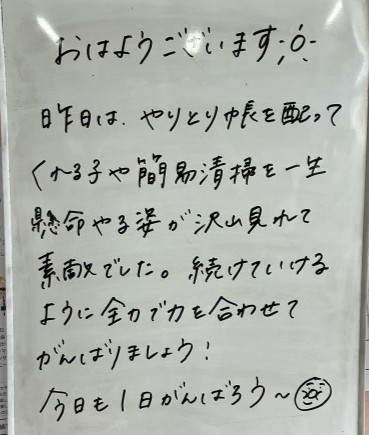 おはようございます
昨日は、やりとり帳を配って
くれる子や簡易清掃を一生
懸命やる姿が沢山見れて
素敵でした。続けていける
ように全力で力を合わせて
がんばりましょう!
今日も1日がんばろう～